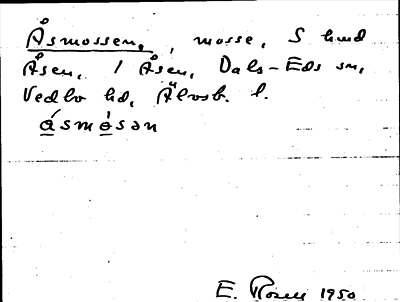 Åsmossen, mosse, S
Åsen, 1 Åsen, Dals-Eds sn,
Vedbo hd, Älvsb. l.
åsmåsən
E. Rosell 1950